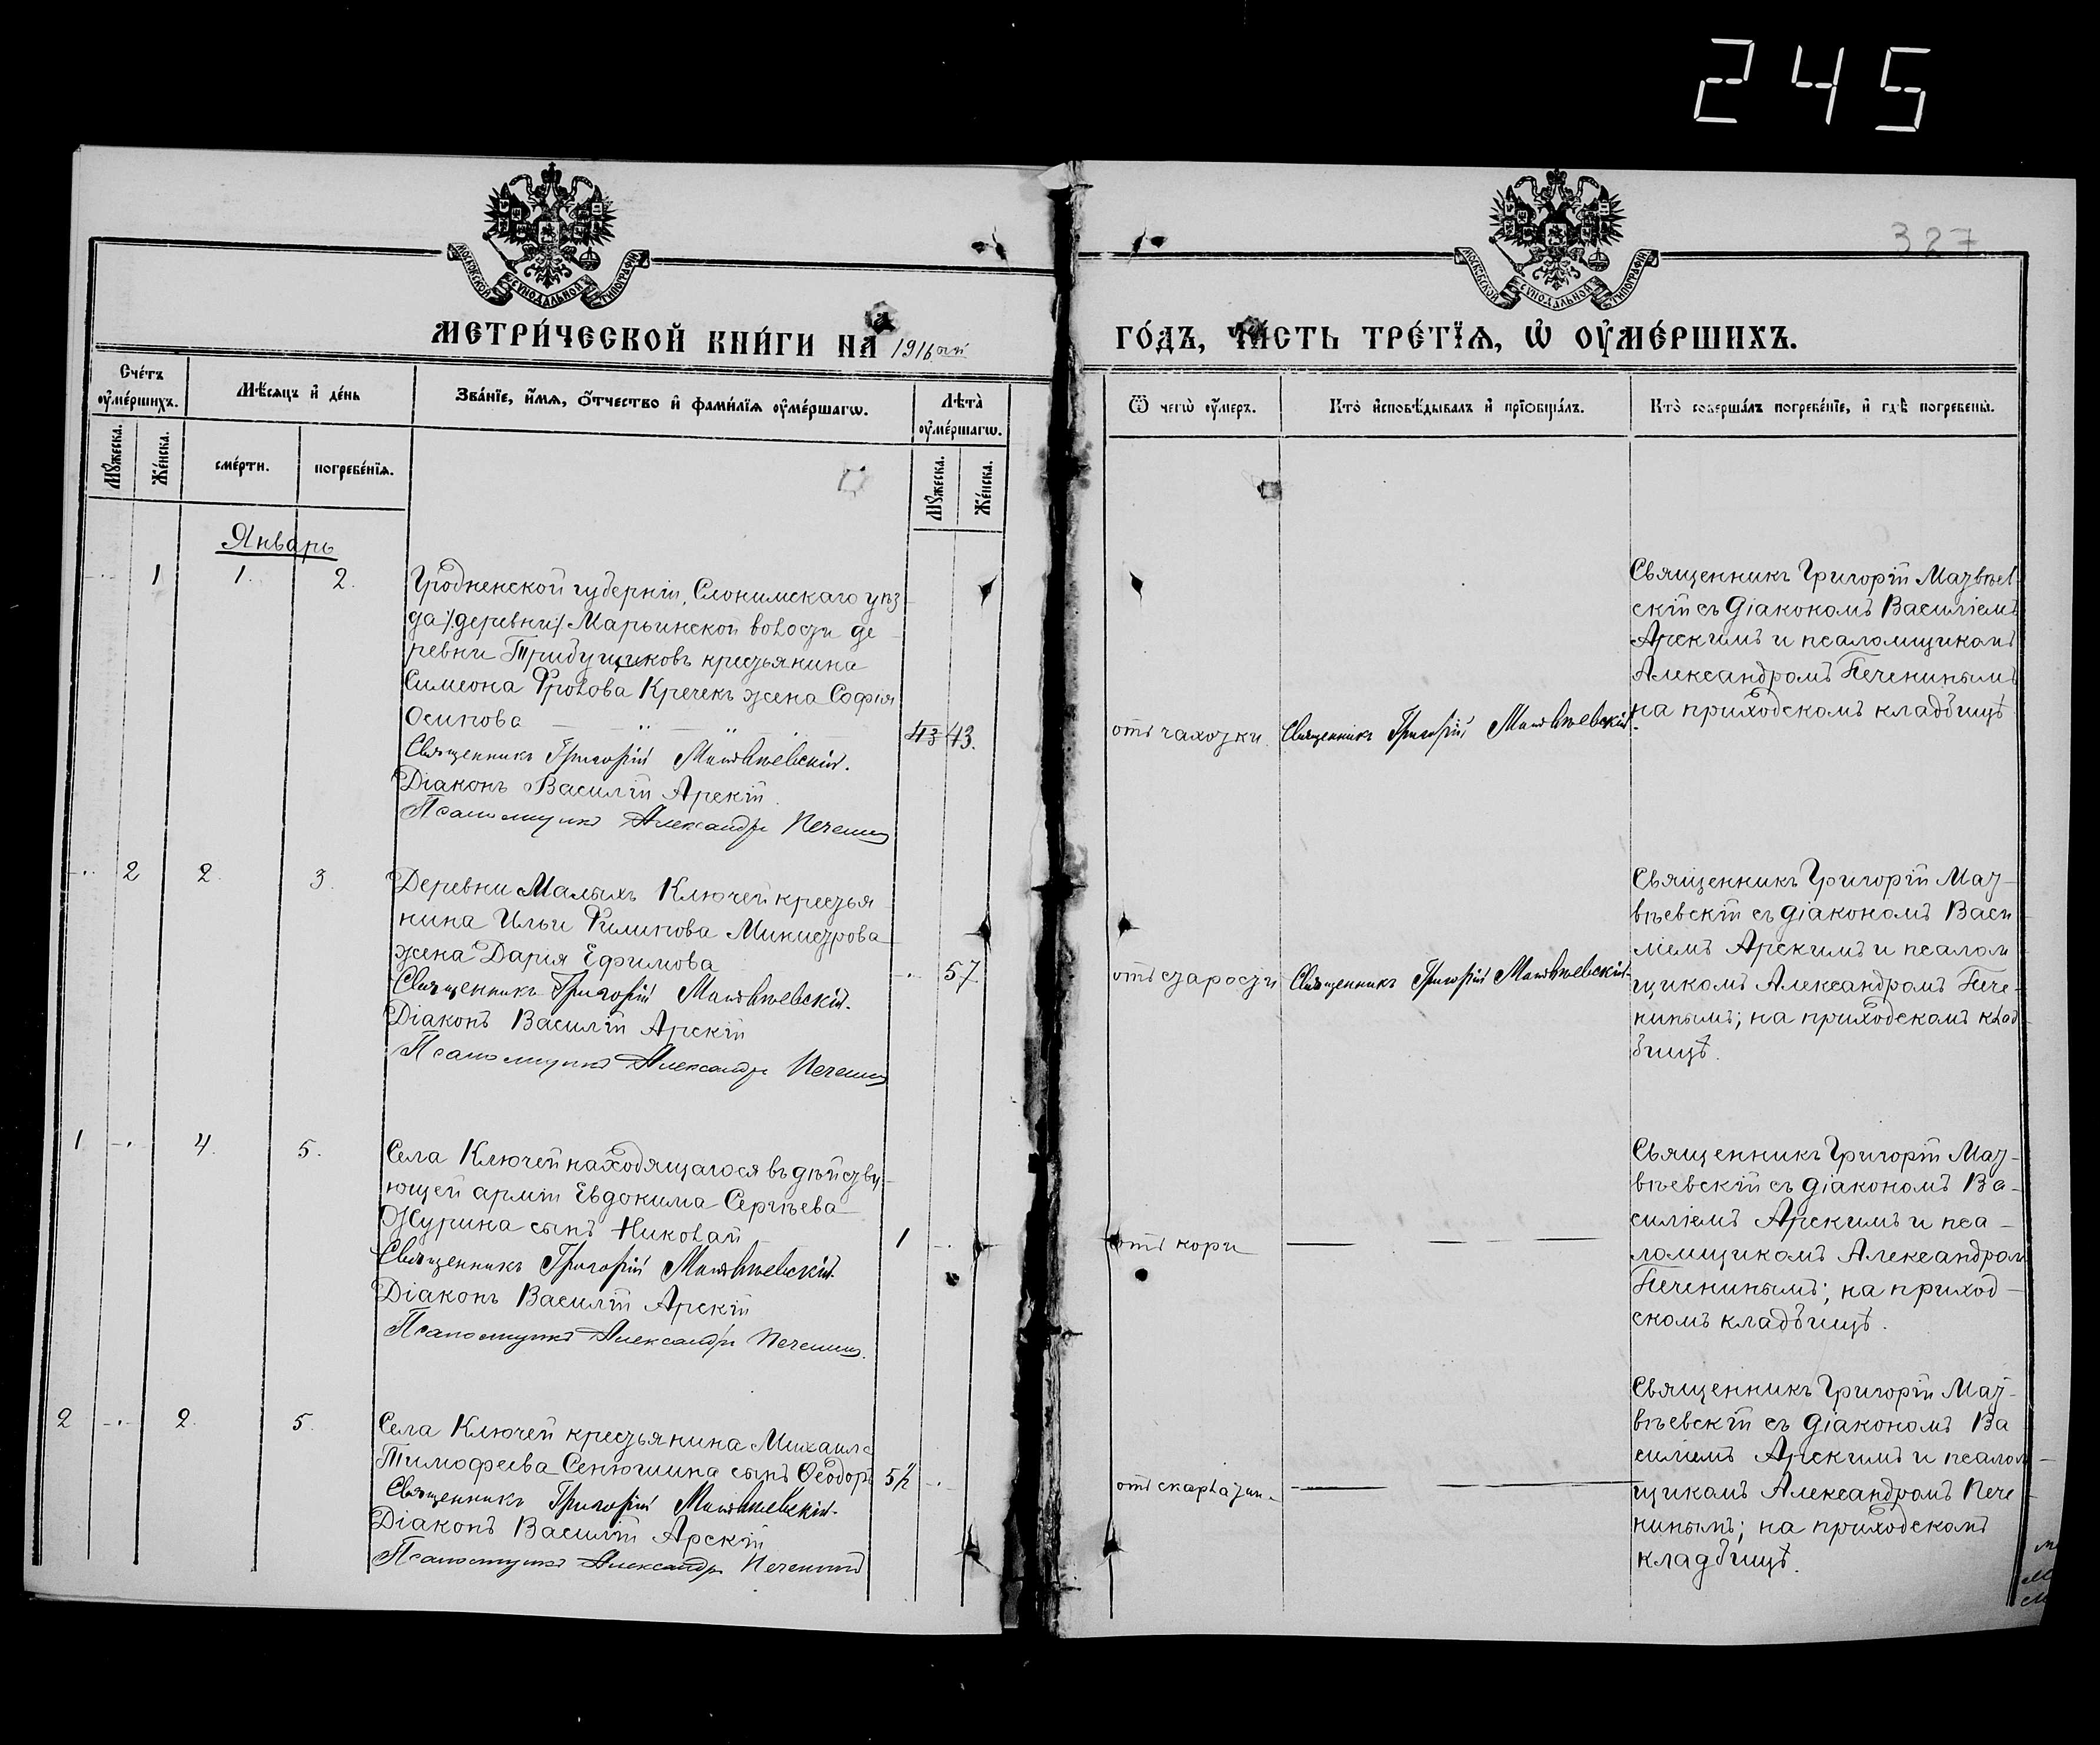 245
МОСКОВСКОЙ СѴНОДАЛЬНОЙ ТИПОГРАФІИ
МОСКОВСКОЙ СѴНОДАЛЬНОЙ ТИПОГРАФІИ
327
МЕТРИ́ЧЕСКОЙ КНИ́ГИ НА 1916ый
ГО́ДЪ, ЧА́СТЬ ТРЕ́ТЇѦ, Ѡ҆ ОУ҆МЕ́РШИХЪ.
Сче́тъ оу҆ме́ршихъ.
Мѣ́сяцъ и҆ де́нь
Зва́нїе, и҆́мѧ, ѻ҆́тчество и҆ фами́лїѧ оу҆ме́ршагѡ.
Лѣ́та оу҆ме́ршагѡ.
Ѿ чегѡ̀ оу҆́меръ.
Кто̀ и҆сповѣ́дывалъ и҆ прїѡбща́лъ.
Кто̀ соверша́лъ погребе́нїе, и҆ гдѣ̀ погребены̀.
Мꙋ́жеска.
Же́нска.
сме́рти.
погребе́нїѧ.
Мꙋ́жеска.
Же́нска.
Январь
1
1.
2.
Гродненской губерніи, Слонимскаго уѣз
да /деревни/ Марьинской волости де
ревни Трибущиковъ крестьянина
Симеона Фролова Кречекъ жена Софія
Осипова
43 43.
Священникъ Григорій Матвѣевскій.
Діаконъ Василій Арскій.
Псаломщикъ Александръ Печенинъ
отъ чахотки.
Священникъ Григорій Матвѣевскій.
Священникъ Григорій Матвѣев
скій съ діакономъ Василіемъ
Арскимъ и псаломщикомъ
Александромъ Печенинымъ
на приходскомъ кладбищѣ.
2
2.
3.
Деревни Малыхъ Ключей крестья
нина Ильи Филипова Министрова
жена Дарія Ефимова
57
Священникъ Григорій Матвѣевскій.
Діаконъ Василій Арскій
Псаломщикъ Александръ Печенинъ
отъ старости
Священникъ Григорій Матвѣевскій.
Священникъ Григорій Мат-
вѣевскій съ діакономъ Васи
ліемъ Арскимъ и псалом
щикомъ Александромъ Пече-
нинымъ; на приходскомъ клад
бищѣ.
1
4.
5.
Села Ключей находящагося въ дѣйству-
ющей арміи Евдокима Сергѣева
Журина сынъ Николай
1
Священникъ Григорій Матвѣевскій.
Діаконъ Василій Арскій
Псаломщикъ Александръ Печенинъ.
отъ кори
Священникъ Григорій Мат-
вѣевскій съ діакономъ Ва-
силіемъ Арскимъ и пса-
ломщикомъ Александром
Печенинымъ; на приход-
скомъ кладбищѣ.
2
2.
5.
Села Ключей крестьянина Михаила
Тимофеева Сенюшина сынъ Ѳеодоръ
5½
Священникъ Григорій Матвѣевскій.
Діаконъ Василій Арскій
Псаломщикъ Александръ Печенинъ
отъ скарлатин.
Священникъ Григорій Мат-
вѣевскій съ діакономъ Ва
силіемъ Арскимъ и псалом-
щикомъ Александромъ Пече
нинымъ; на приходскомъ
кладбищѣ.